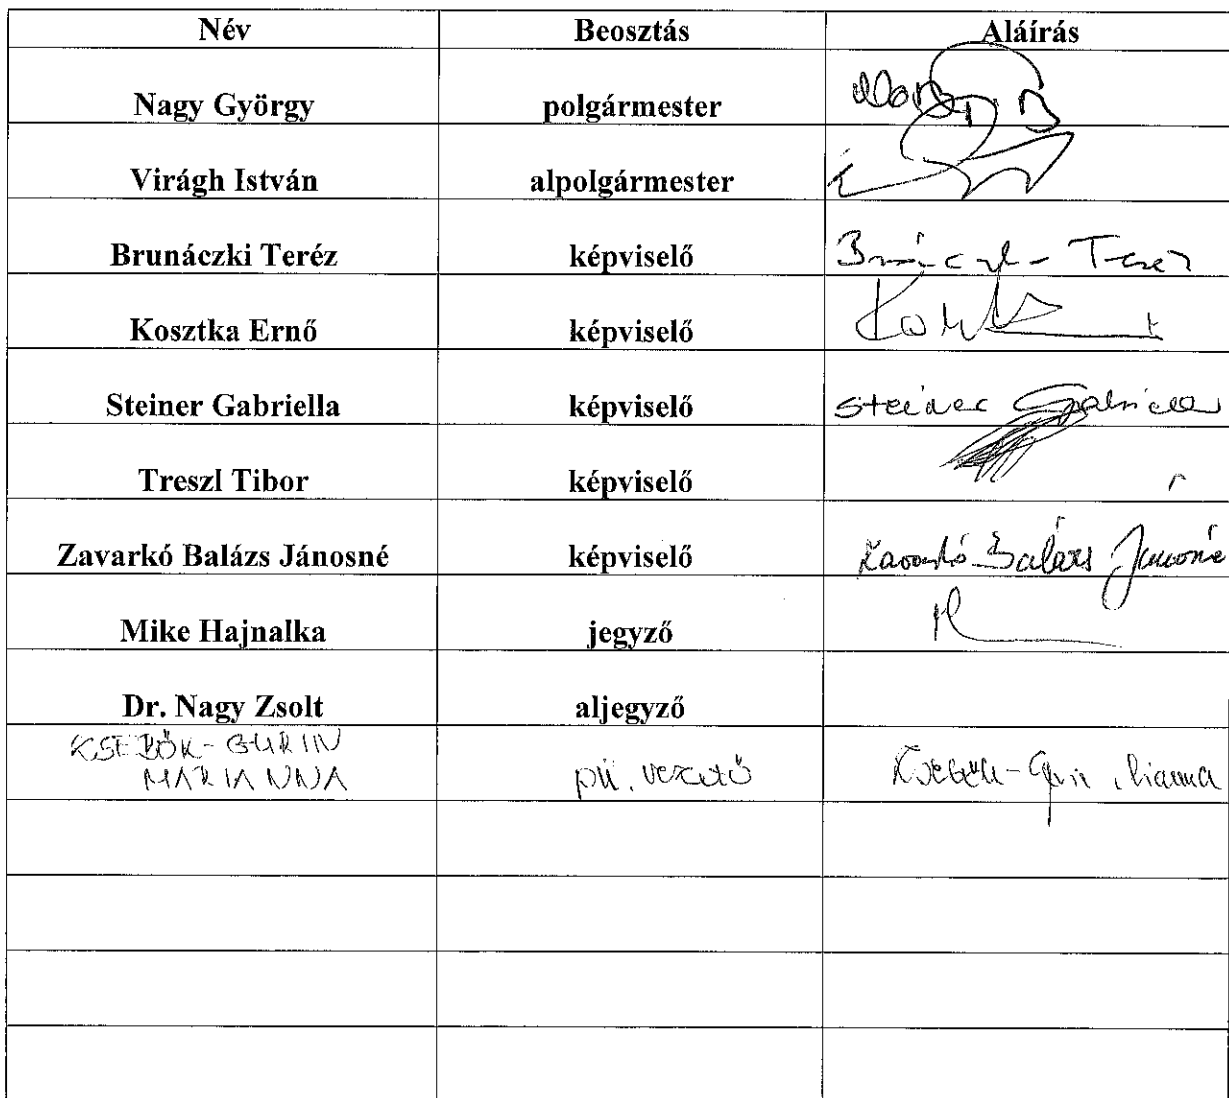 Név Beosztás Aláírás
Nagy György polgármester
Virágh István alpolgármester
Brunáczki Teréz képviselő
Kosztka Ernő képviselő
Steiner Gabriella képviselő Steiner Gabriella
Treszl Tibor képviselő
Zavarkó Balázs Jánosné képviselő Zavarkó Balázs Jánosné
Mike Hajnalka jegyző
Dr. Nagy Zsolt aljegyző
MARIANNA pü. vezető